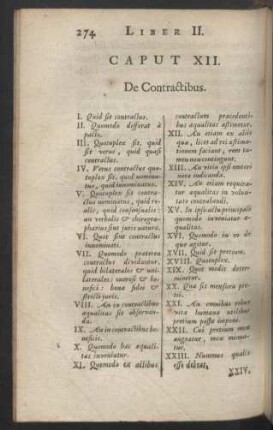 274 LIBER II.
CAPUT XII.
De Contractibus.
I. Quid sit contractus.
II. Quomodo differat à
pacto.
III. Quotuplex sit, quid
sit verus, quid quasi
contractus.
IV. Verus contractus quo-
tuplex sit, quid nomina-
tus, quid innominatus.
V. Quotuplex sit contra-
ctus nominatus, quid re-
alis, quid consensualis:
an verbalis & chirogra-
pharius sint juris naturæ.
VI. Quot sint contractus
innominati.
VII. Quomodo præterea
contractus dividantur,
quid bilaterales & uni-
laterales: onerosi & be-
nefici: bonæ fidei &
stricti juris.
VIII. An in contractibus
æqualitas sit observan-
da.
IX. An in contractibus be-
neficis.
X. Quomodo hæc æquali-
tas inveniatur.
XI. Quomodo ex actibus
contractum præcedenti-
bus æqualitas æstimetur.
XII. An etiam ex aliis
quæ, licet ad rei æstima-
tionem faciant, rem ta-
men non contingunt.
XIII. An vitia rei exteri-
ora indicanda.
XIV. An etiam requira-
tur æqualitas in volun-
tate contrahendi.
XV. In ipso actu principali
quomodo inveniatur æ-
qualitas.
XVI. Quomodo in re de
qua agitur.
XVII. Quid sit pretium.
XVIII. Quotuplex.
XIX. Quot modis deter-
minetur.
XX. Quæ sit mensura pre-
tii.
XXI. An omnibus rebus
vitæ humanæ utilibus
pretium possit imponi.
XXII. Cur pretium modo
augeatur, modo minua-
tur.
XXIII. Nummus qualis
esse debeat,
XXIV.